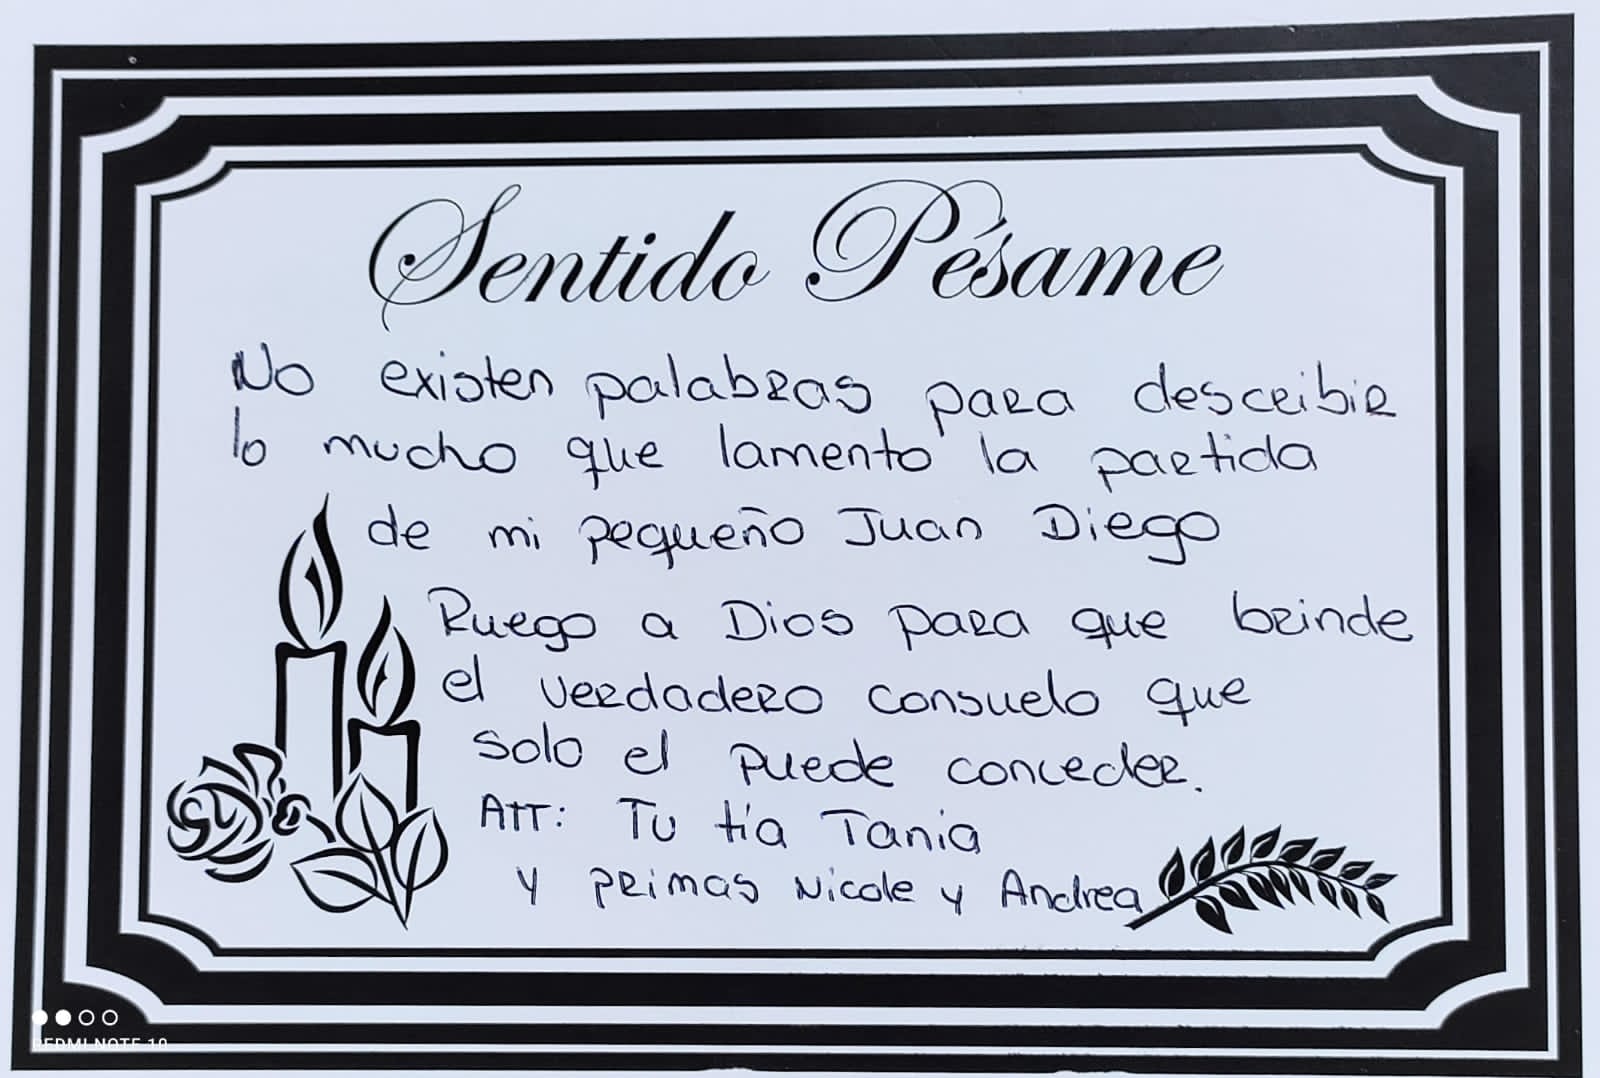 Sentido Pésame
No existen palabras para describir
lo mucho que lamento la partida
de mi pequeño Juan Diego
Ruego a Dios para que brinde
el verdadero consuelo que
solo el puede conceder.
Att: Tu tía Tania
y primas Nicole y Andrea
REDMI NOTE 10